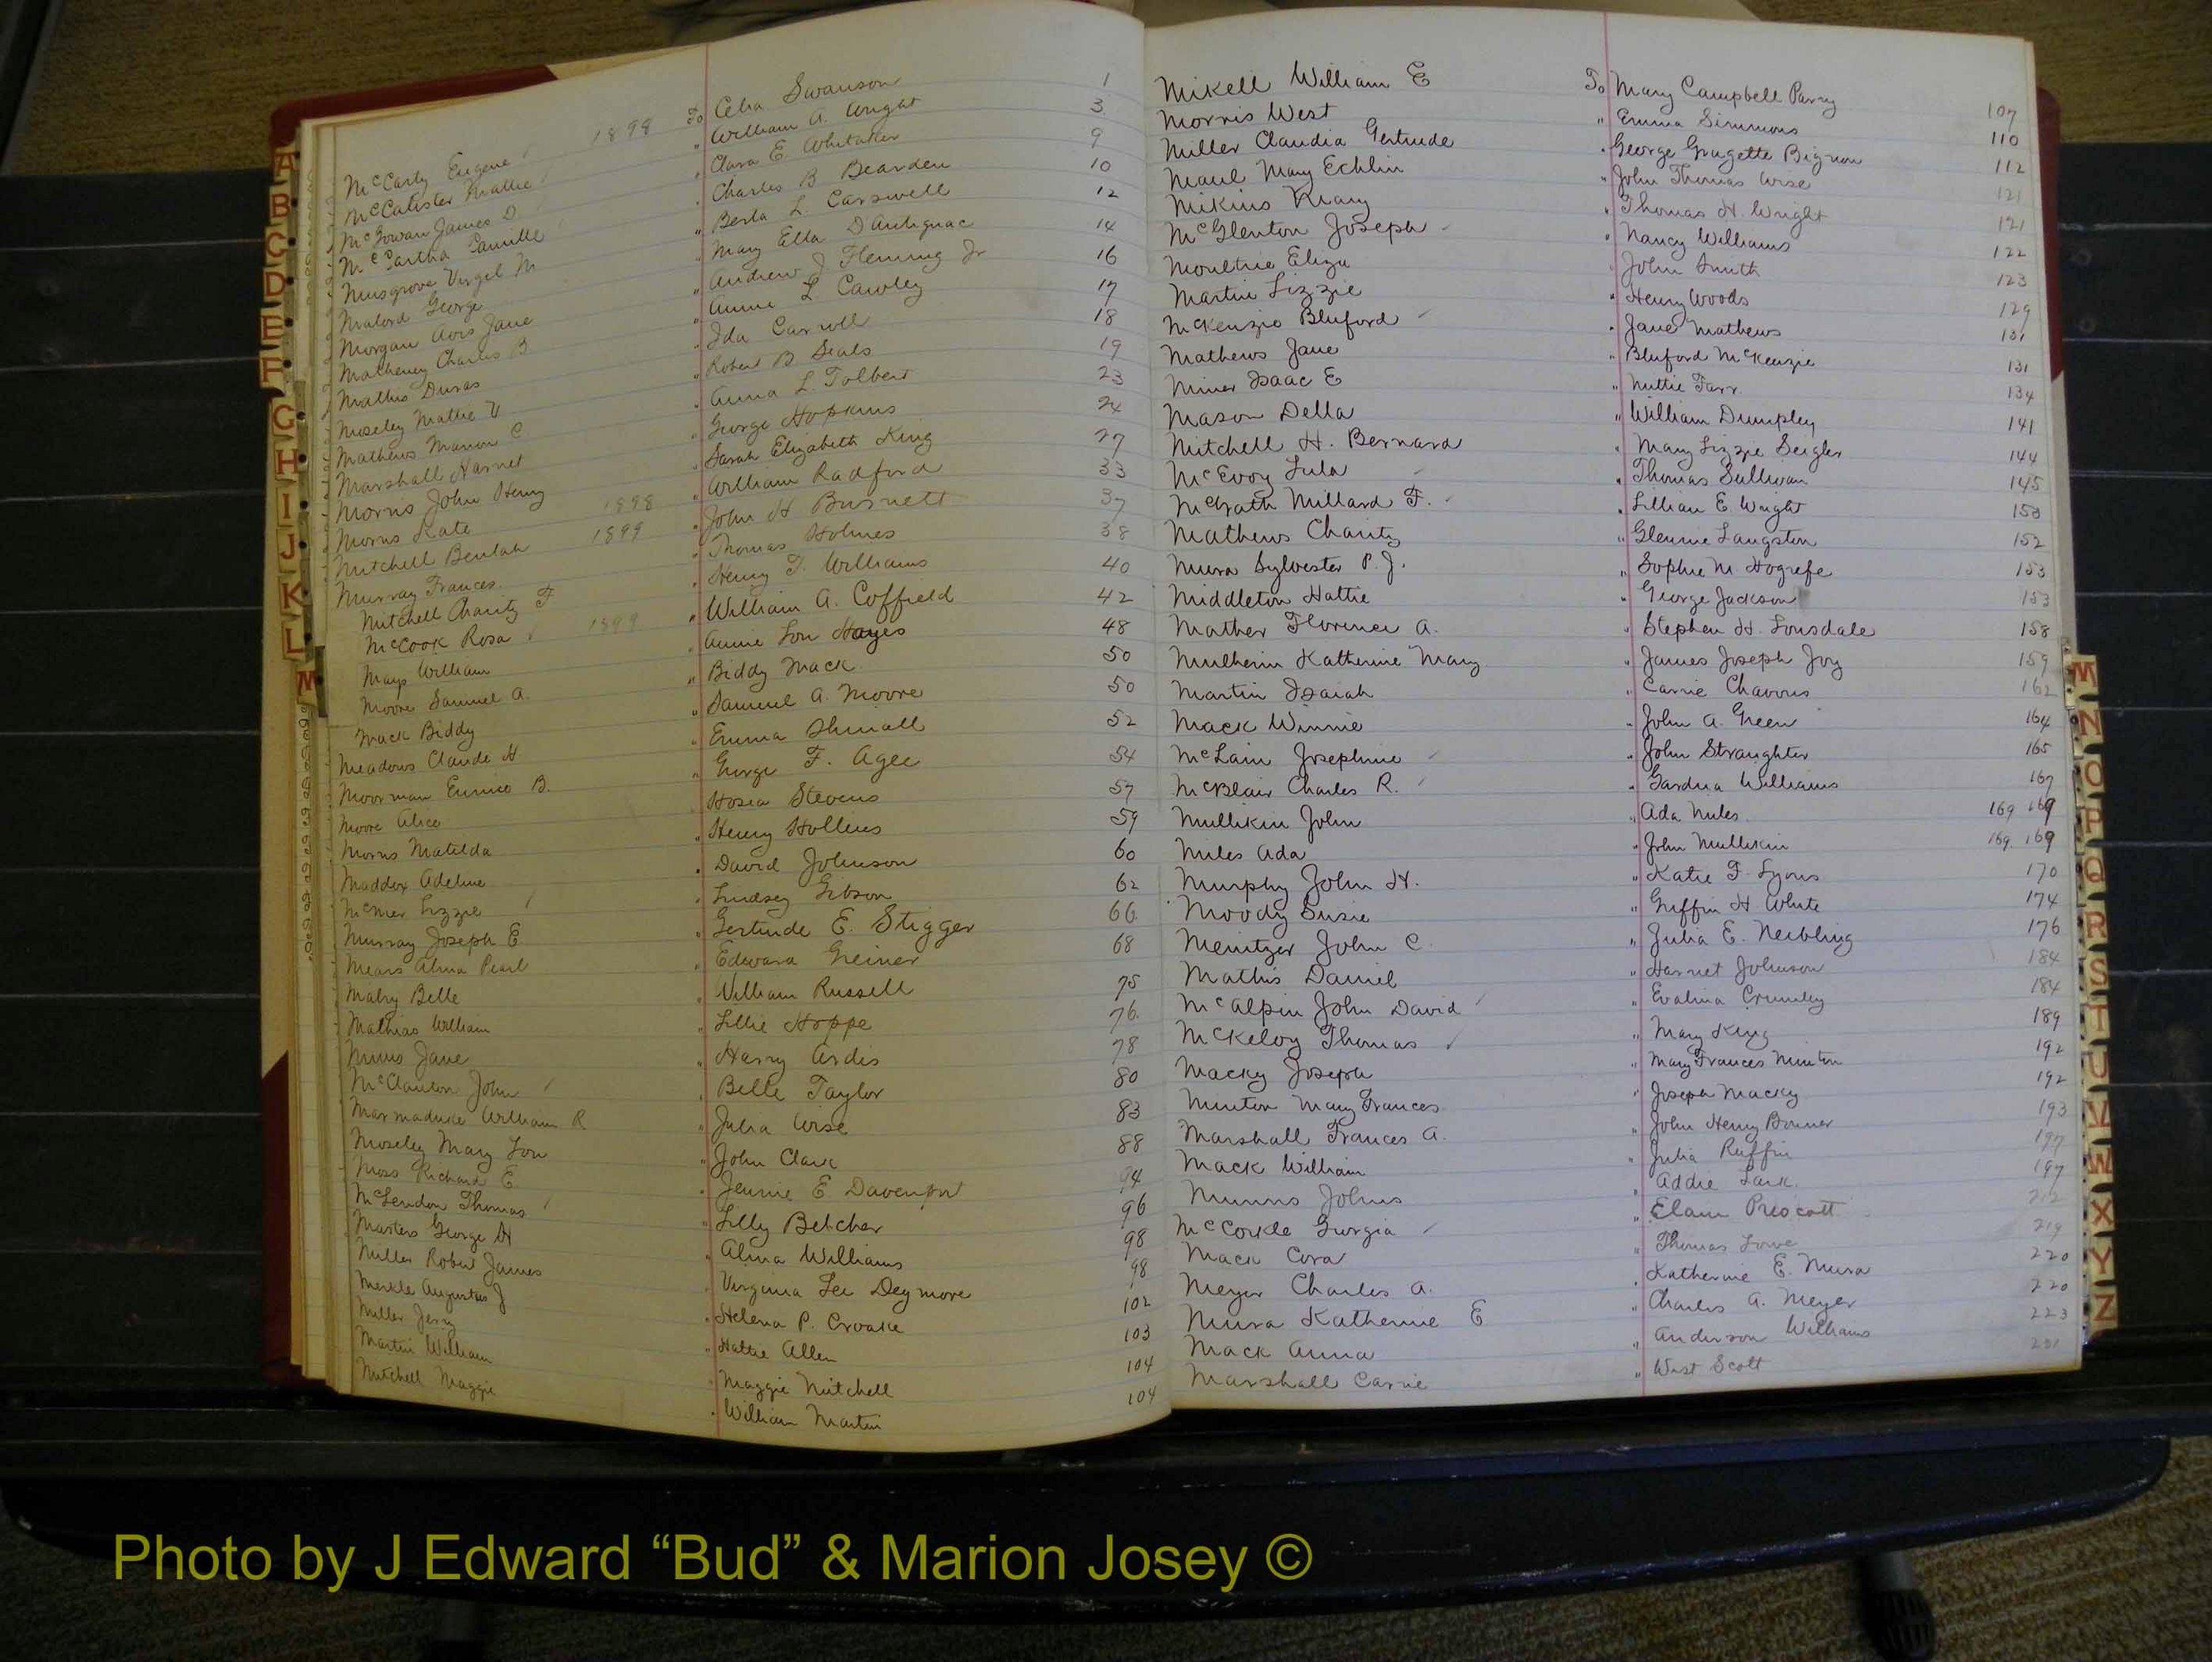 McCarty Eugene 1898 To Celia Swanson 1
McCalister Mattie " William A. Wright 3
McGowan James D " Clara E. Whitaker 9
McCartha Camille " Charles B Bearden 10
Musgrove Virgil M " Berta L Carswell 12
Malord George " Mary Ella D'Antignac 14
Morgan Avis Jane " Andrew J Fleming Jr 16
Matheney Charles B " Annie L Cawley 17
Mathis Duras " Ida Carroll 18
Moseley Mattie V " Robert B Seals 19
Mathews Marion C " Anna L. Tolbert 23
Marshall Harriet " George Hopkins 24
Morris John Henry " Sarah Elizabeth King 27
Morris Kate 1898 " William Radford 33
Mitchell Beulah 1899 " John H Burnett 37
Murray Frances " Thomas Holmes 38
Mitchell Charity F " Henry T. Williams 40
McCook Rosa 1899 " William A. Coffield 42
Mays William " Annie Lou Hayes 48
Moore Samuel A. " Biddy Mack 50
Mack Biddy " Samuel A. Moore 50
Meadows Claude H " Emma 52
Moorman Eunice B. " George F. Agee 54
Moore Alice Hosea Stevens 57
Morris Matilda " Henry Hollins 59
Maddox Adeline " David Johnson 60
Lizzie " Lindsey Gibson 62
Murray Joseph E. " Gertrude E. Stigger 66.
Mears Alma Pearl " Edward Greiner 68
Malry Belle " William Russell 75
Mathias William " Lillie Hoppe 76.
Mims Jane " Harry Ardis 78
McClanton John " Belle Taylor 80
Marmaduke William R " Julia Wise 83
Moseley Mary Lou " John Clark 88
Moss Richard E. " Jennie E Davenport 94
McLendon Thomas " Lilly Belcher 96
Masters George H " Alma Williams 98
Miller Robert James " Virginia Lee Deymore 98
Merkle Augustus J " Helena P. Croake 102
Miller Jerry " Hattie Allen 103
Martin William " Maggie Mitchell 104
Mitchell Maggie " William Martin 104
Mikell William E To Mary Campbell Parry 107
Morris West " Emma Simmons 110
Miller Claudia Gertrude " George Bignon 112
Maul Mary Echlin " John Thomas Wise 121
Mikins Mary " Thomas H. Wright 121
McGlenton Joseph " Nancy Williams 122
Moultrie Eliza " John Smith 123
Martin Lizzie " Henry Woods 129
McKenzie Bluford " Jane Mathews 131
Mathews Jane " Bluford McKenzie 131
Miner Isaac E " Mittie Farr 134
Mason Della " William Dumpley 141
Mitchell H. Bernard " Mary Lizzie Seigler 144
McEvoy Lula " Thomas Sullivan 145
McGrath Millard F. " Lillian E. Wright 150
Mathews Charity " Glennie Langston 152
Mura Sylvester P. J. " Sophie M. Hogrefe 153
Middleton Hattie " George Jackson 153
Mather Florence A. " Stephen H. Lonsdale 158
Mulherin Katherine Mary " James Joseph Joy 159
Martin Isaiah " Carrie Chavous 162
Mack Winnie " John A. Green 164
McLain Josephine " John Straughter 165
McBlair Charles R. " Gardna Williams 167
Mullikin John " Ada Miles 169 169
Miles Ada " John Mullikin 169 169
Murphy John H. " Katie F. Lyons 170
Moody Susie " Griffin H White 174
Menitzer John C. " Julia E. Neibling 176
Mathis Daniel " Harriet Johnson 184
McAlpin John David " Evalina Crumley 184
McKeloy Thomas " Mary King 189
Macky Joseph " Mary Frances Minton 192
Minton Mary Frances " Joseph Macky 192
Marshall Frances A. " John Henry Bonner 193
Mack William " Julia Ruffin 197
Munns Johns " Addie Lark. 197
McCorkle Georgia " Elam Prescott 212
Mack Cora " Thomas Lowe 219
Meyer Charles A. " Katherine E. Mura 220
Mura Katherine E " Charles A. Meyer 220
Mack Anna " Anderson Williams 223
Marshall Carrie " West Scott 231
A
B
C
D
E
F
G
H
I
J
K
L
M
M
N
O
P
Q
R
S
T
U
V
W
X
Y
Z
Photo by J Edward “Bud” & Marion Josey ©